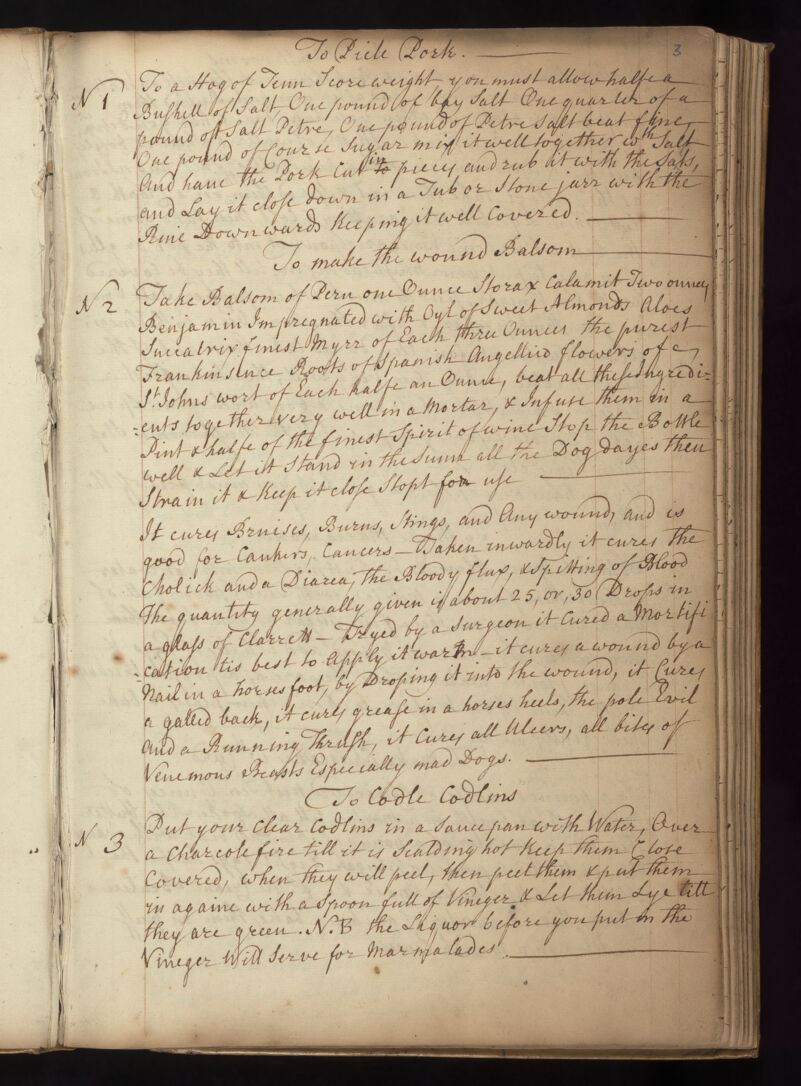 To Picle Pork.
3
N 1
To a Hog of Tenn Score weight you must allow halfe a
Bushell of Salt One pound of bay Salt One quarter of a
pound off Salt Petre, One pound of Petre Salt beat fine,
One pound of Course Sugar mix it well together wth Salt
And have the Pork Cut in to pieces, and rub it with the Salt,
and Lay it close down in a Tub or Stone jarr with the
Rine Downwards Keeping it well Covered.
To make the wound Balsom
N 2
Take Balsom of Peru one Ounce Storax Calamit Two ounces
Benjamin Impregnated with Oyl of Sweet Almonds Aloes
Succatrix finest Myrr of Each three Ounces the purest
Frankinsence Roots of Spanish Angellico flowers of
St Johns wort of Each halfe an Ounce, beat all these ingredi=
=ents together very well in a Mortar, & Infuse them in a
Pint & halfe of the finest Spirit of wine Stop the Bottle
well & Let it Stand in the Sunn all the Dog dayes then
Strain it & Keep it close Stopt for use
It cures Bruises, Burns, Stings, and Any wound, and is
good for Cankers, Cancers - Taken inwardly it cures the
Cholick and a Diarea, the Bloody flux, & Spitting of Blood
The quantity generally given is about 25, or, 30 Drops in
a glass of Clarrett - Tryed by a Surgeon it Cured a Mortifi
=cation tis best to Apply it warm - it cures a wound by a
Nail in a horses foot, by Droping it into the wound, it Cures
a galled back, it cures grease in a horses heels, the pole Evil
and a Running Thrush, it Cures all Ulcers, all bites of
Venemous Beasts Especially mad Dogs.
To Codle Codlins
N 3
Put your Clear Codlins in a Sauce pan with Water, Over
a Charcole fire till it is Scalding hot Keep them Close
Covered, when they will peel, then peel them & put them
in againe with a Spoon full of Vineger & Let them Lye till
they are green. N.B the Liquor before you put in the
Vineger Will Serve for Marmalades.